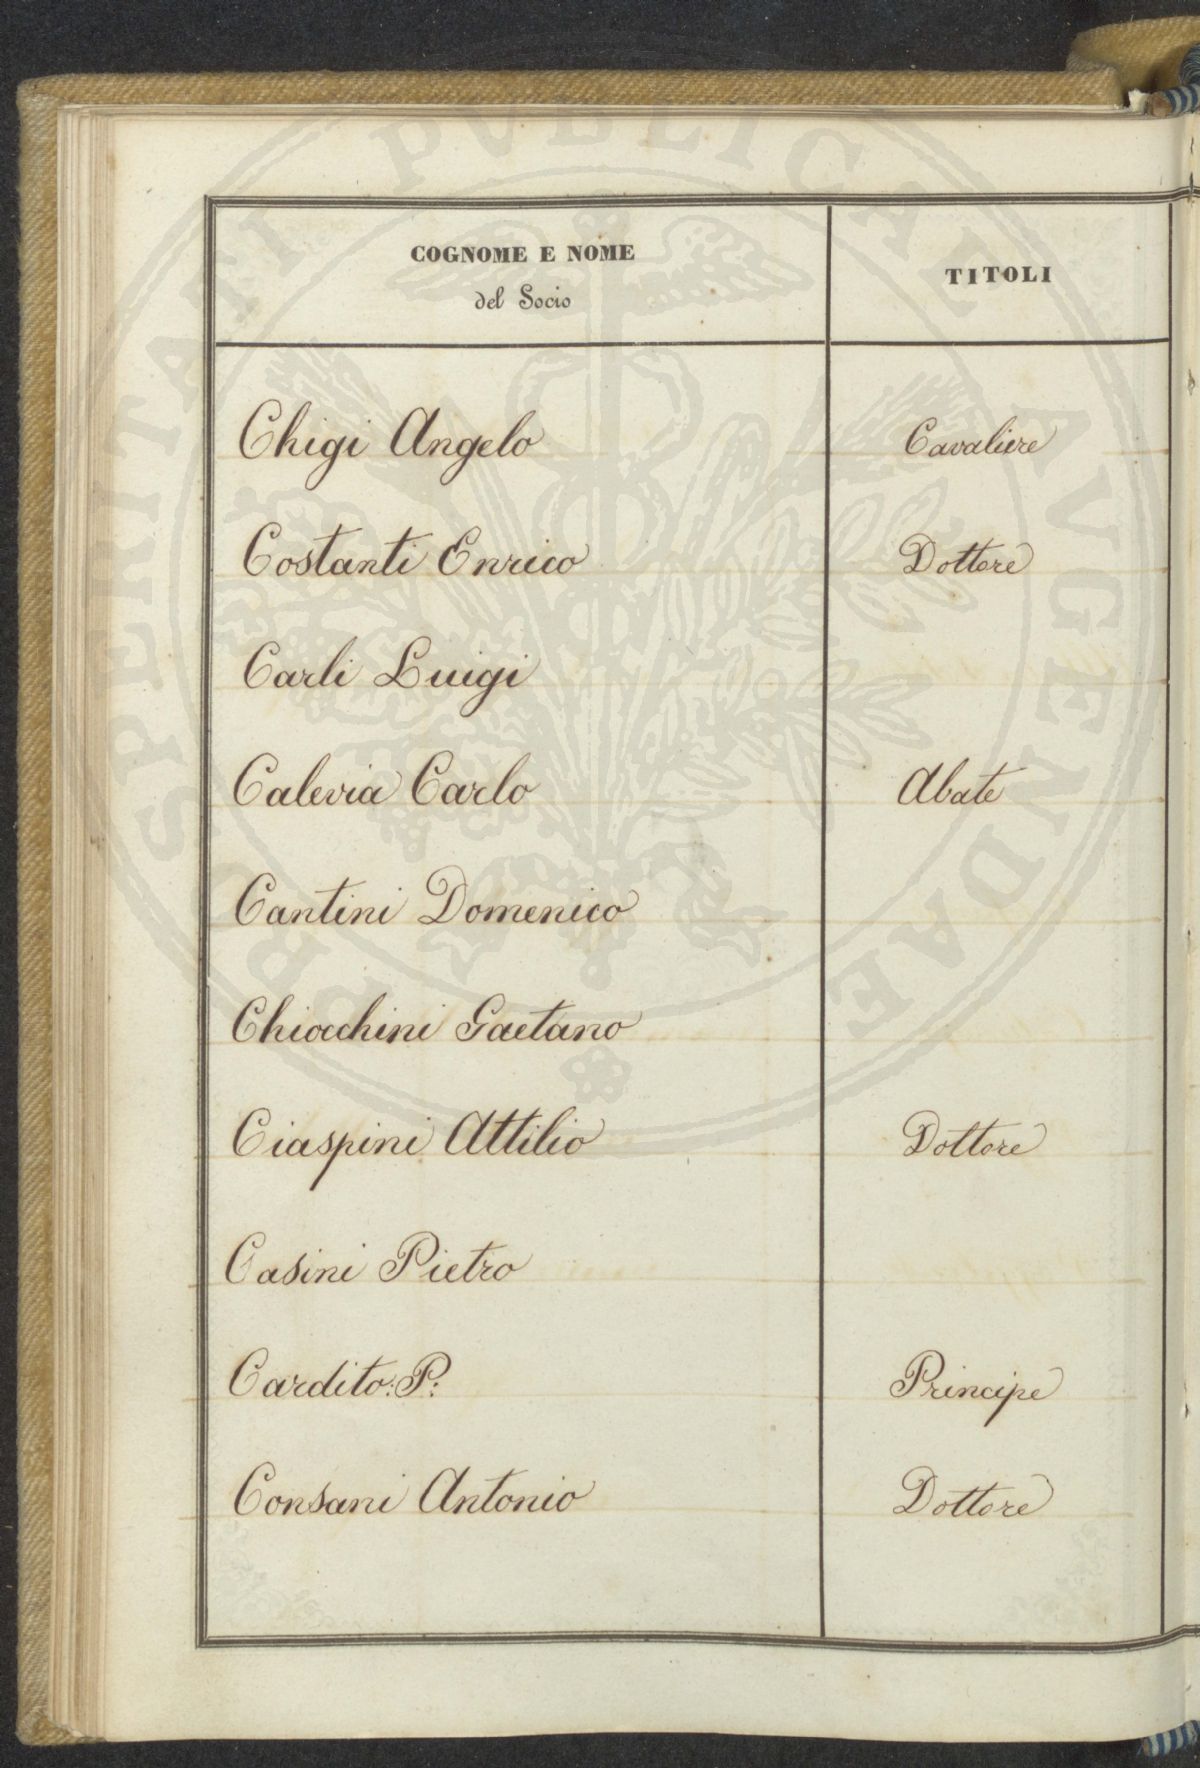 COGNOME E NOME
del Socio
TITOLI
Chigi Angelo Cavaliere
Costanti Enrico Dottore
Carli Luigi
Calevia Carlo Abate
Cantini Domenico
Chiocchini Gaetano
Ciaspini Attilio Dottore
Casini Pietro
Cardito: P: Principe
Consani Antonio Dottore
PROSPERITATI PVBLICAE AVGENDAE